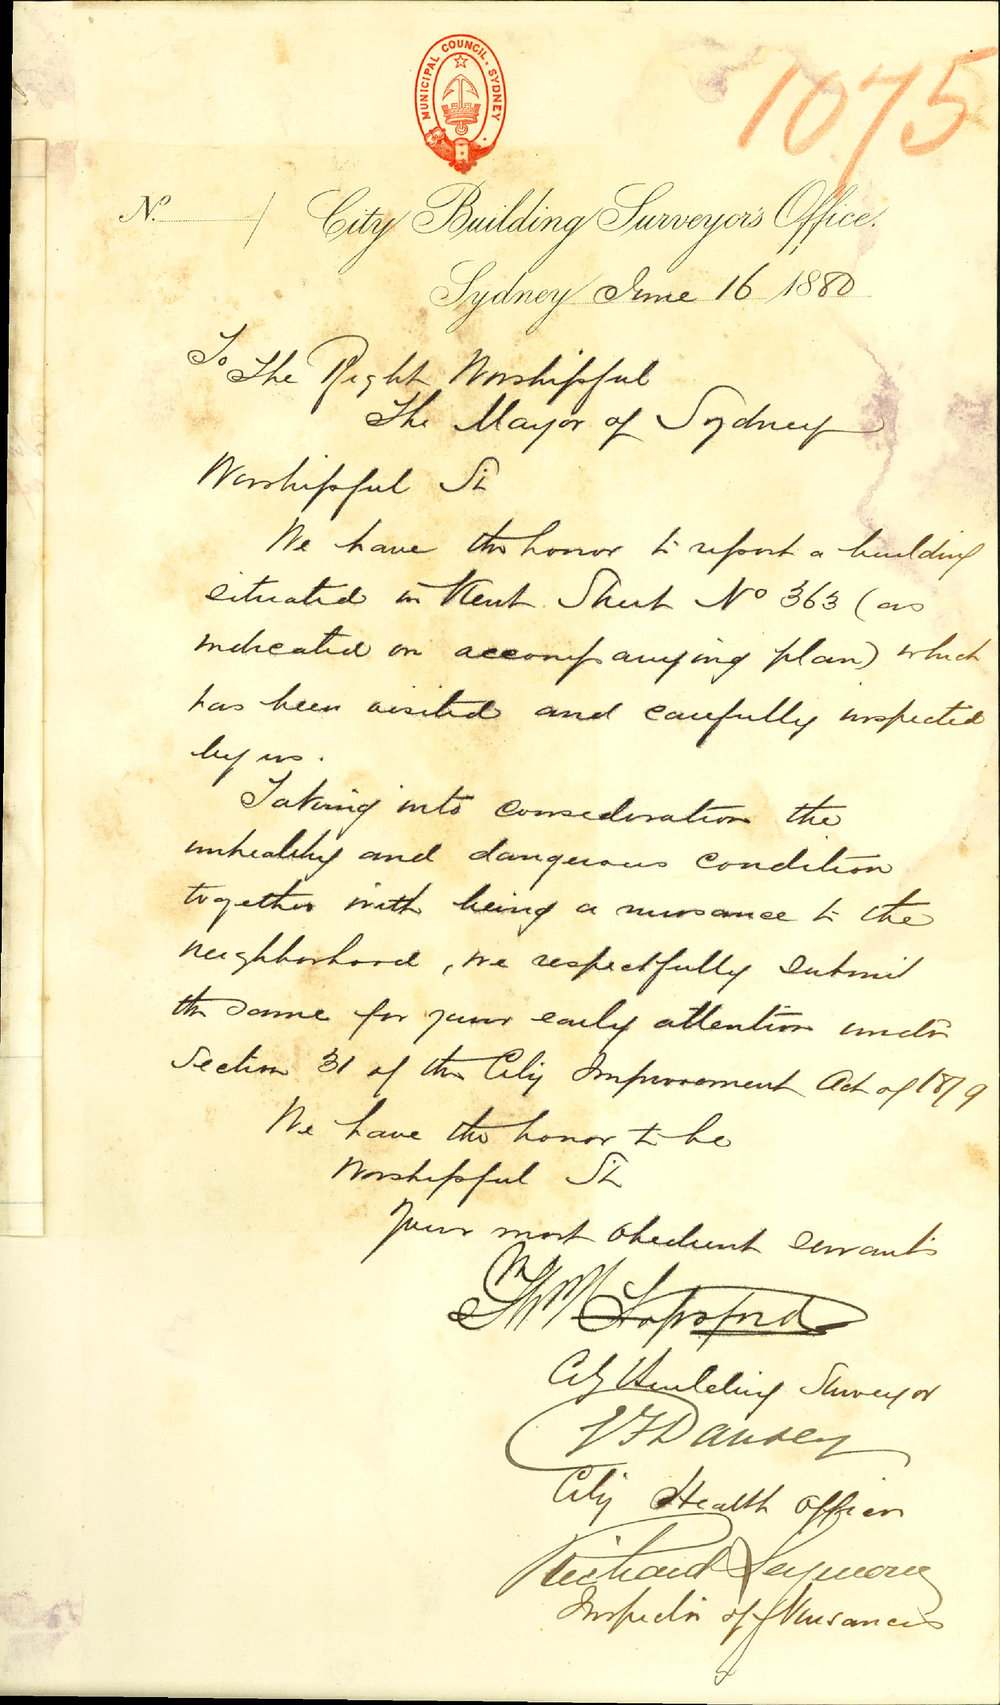 MUNICIPAL COUNCIL, SYDNEY
1075
No. / City Building Surveyor's Office.
Sydney June 16 1880
To The Right Worshipful
The Mayor of Sydney
Worshipful Sir
We have the honor to report a building
situated in Kent Street No 363 (as
indicated on accompanying plan) which
has been visited and carefully inspected
by us.
Taking into consideration the
unhealthy and dangerous condition
together with being a nuisance to the
neighborhood, we respectfully submit
the same for your early attention under
Section 31 of the City Improvement Act of 1879
We have the honor to be
Worshipful Sir
Your most obedient servants
City Building Surveyor
Dansey
City Health Officer
Richard Seymour
Inspector of Nuisances